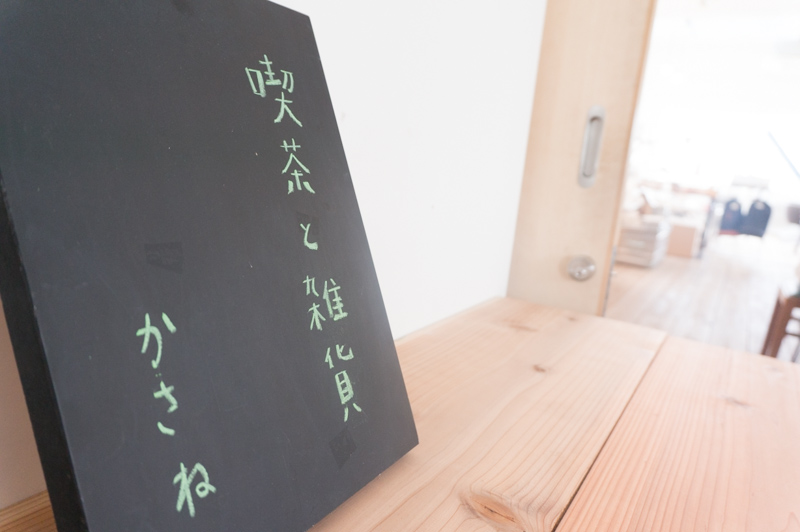 喫茶と雑貨
かさね